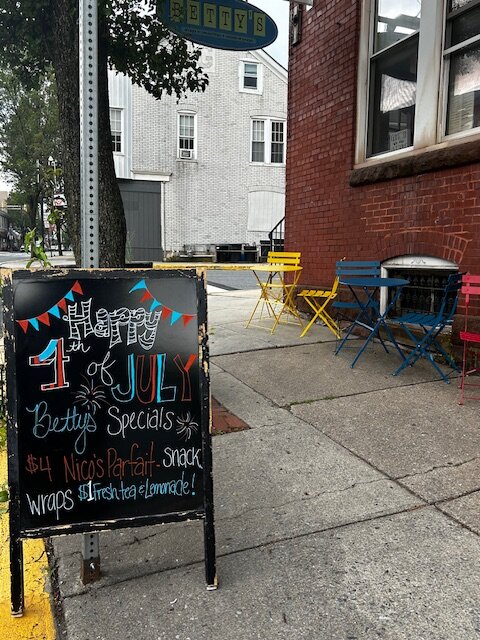 BETTY'S
Happy
1th of JULY
Betty's Specials
$4 Nico's Parfait - Snack
Wraps $1 Fresh tea & Lemonade!